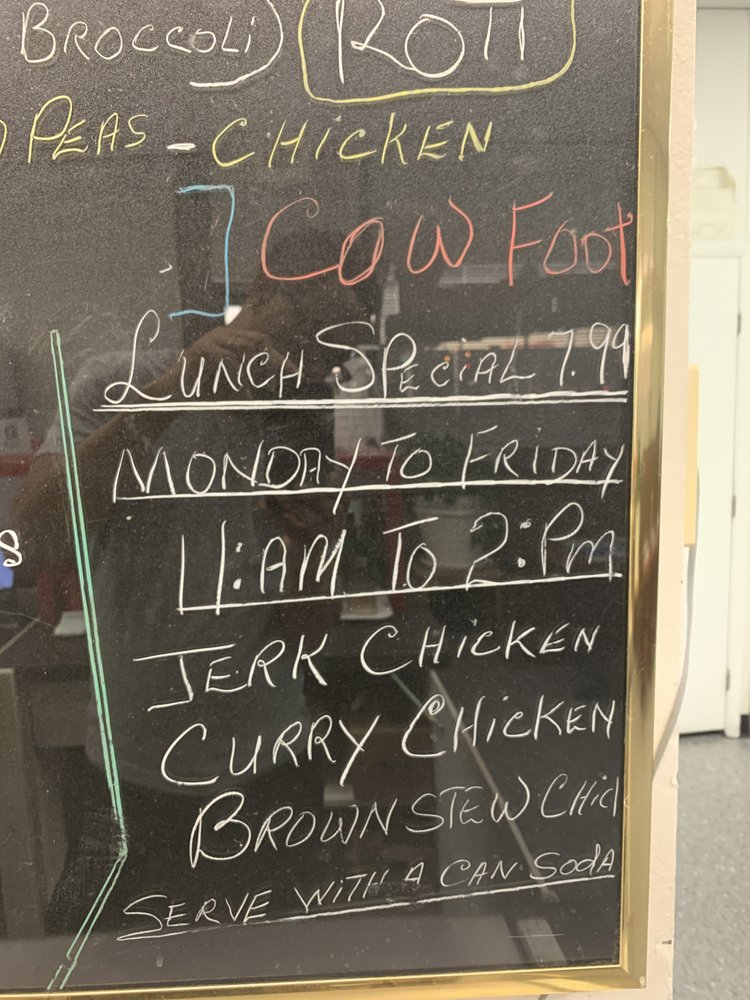 BROCCOLI) ROTI
) PEAS - CHICKEN
] COW FOOT
LUNCH SPECIAL 7.99
MONDAY TO FRIDAY
11:AM TO 2:PM
S
JERK CHICKEN
CURRY CHICKEN
BROWN STEW CHIC
SERVE WITH A CAN SODA